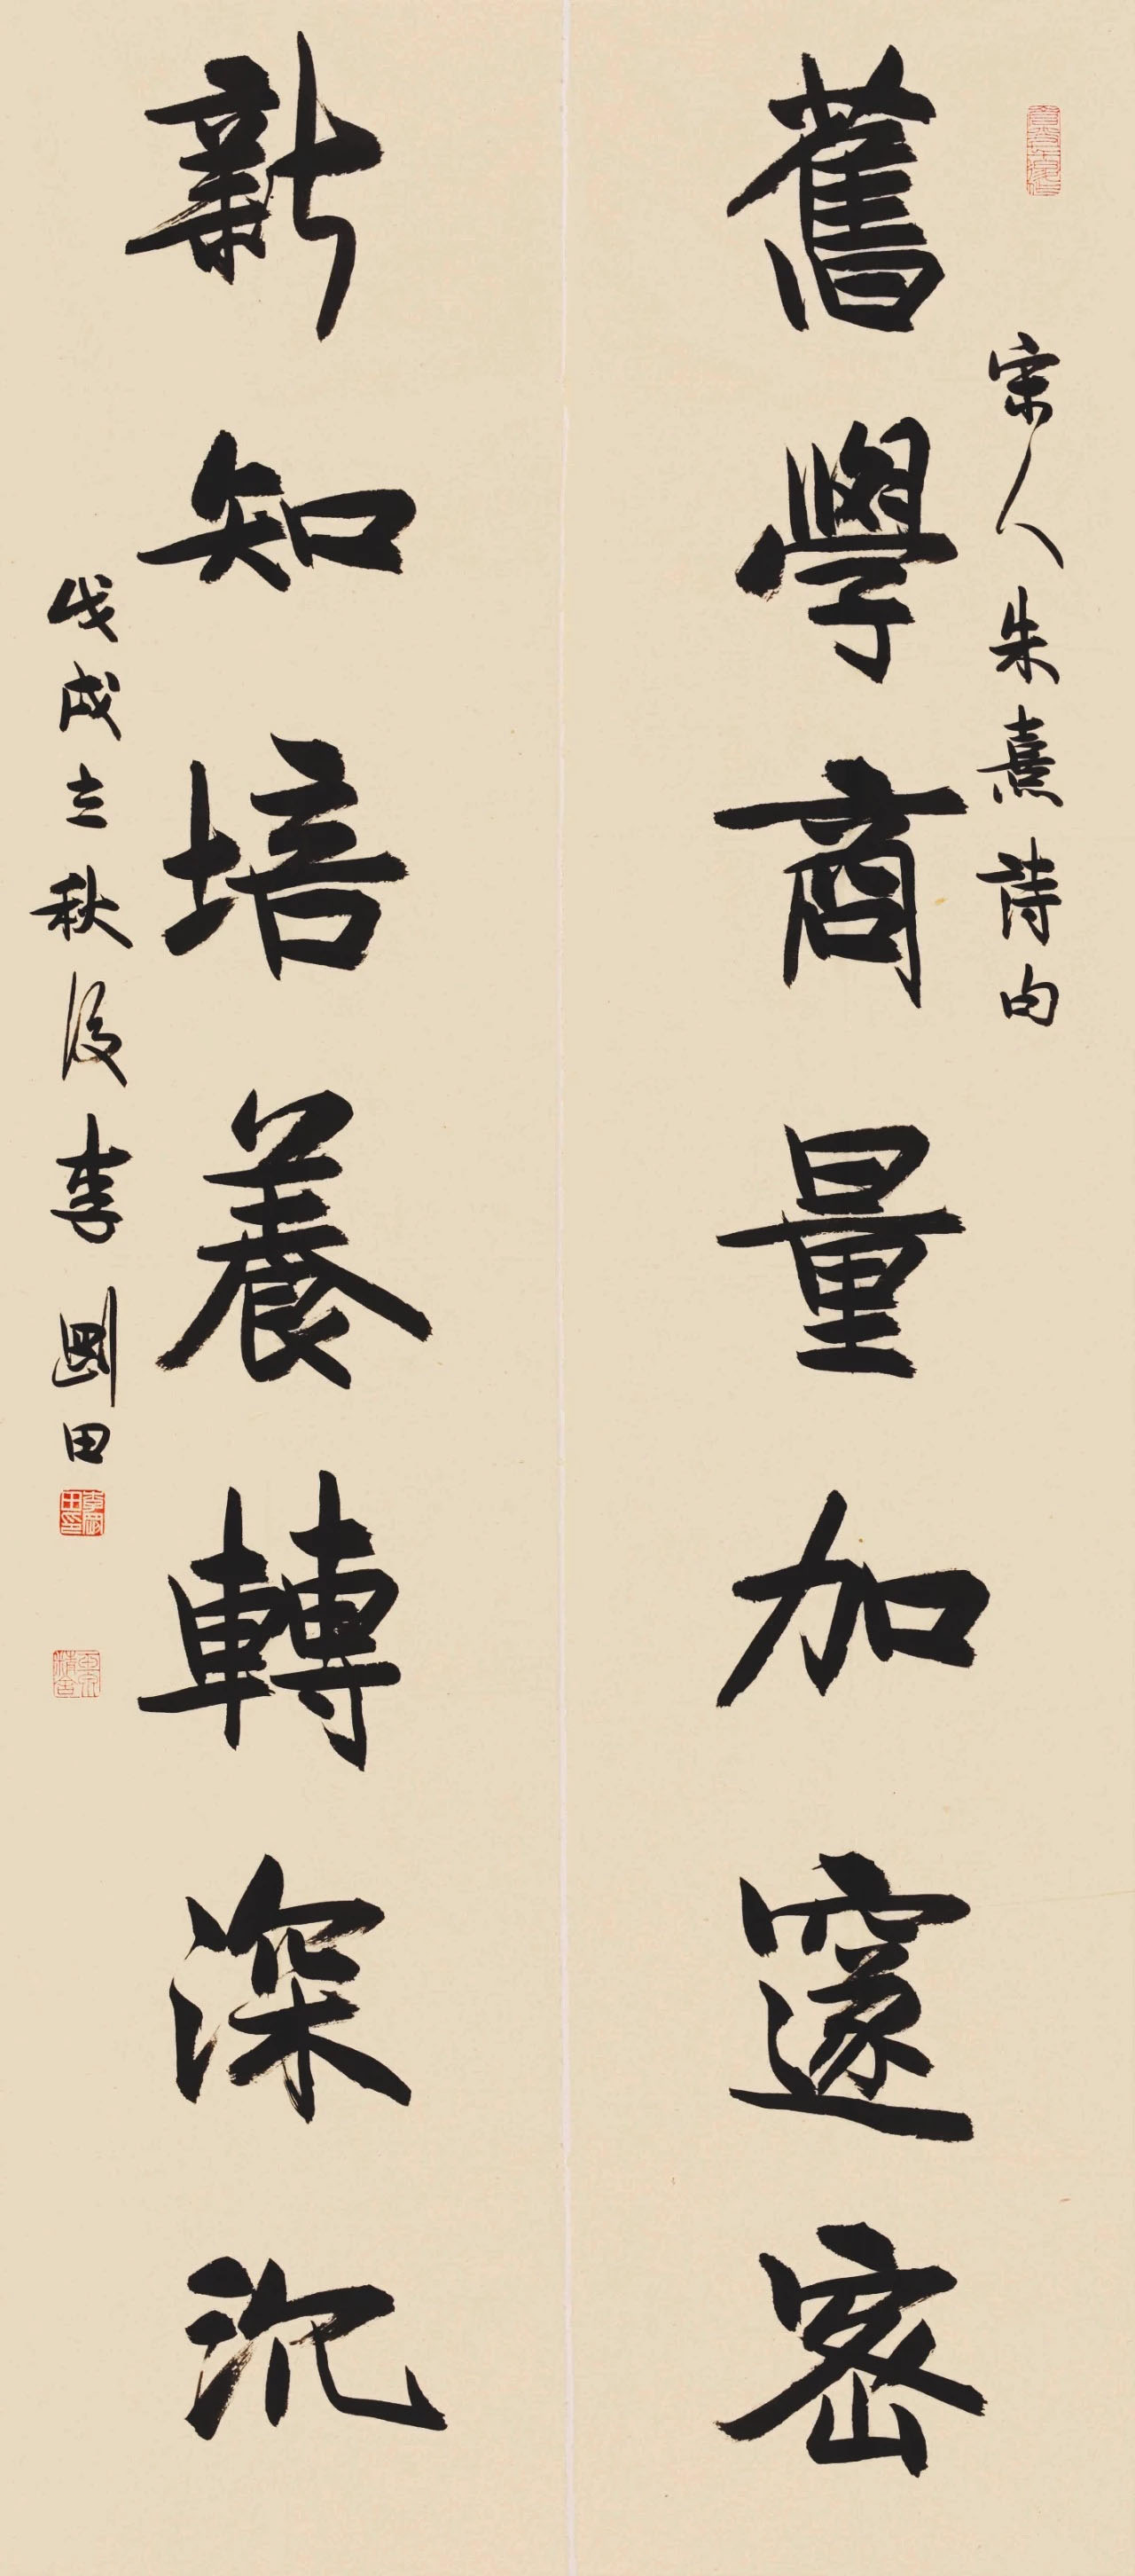 宋人朱熹詩句
舊學商量加邃密
新知培養轉深沉
戊戌立秋後李剛田